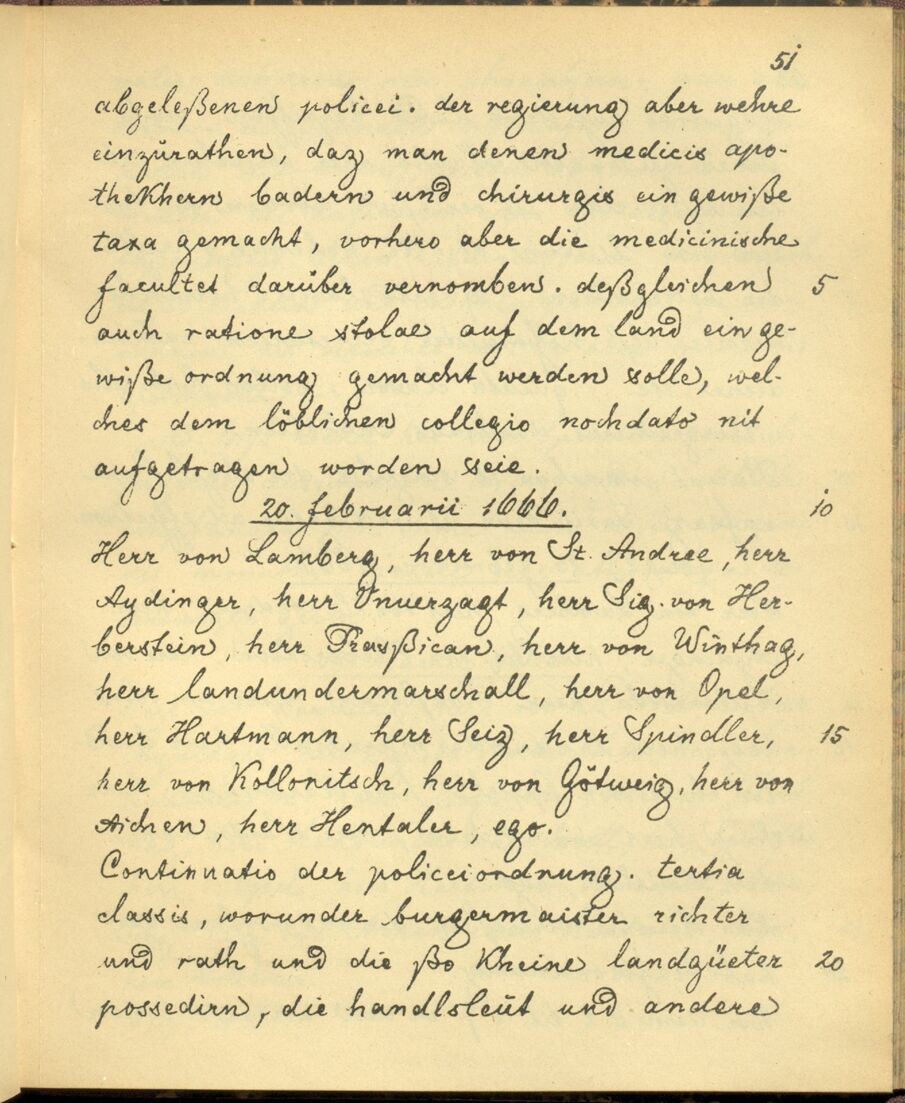 51
abgeleßenen policei. der regierung aber wehre
einzurathen, daz man denen medicis apo-
theKhern badern und chirurgis ein gewiße
taxa gemacht, vorhero aber die medicinische
facultet darüber vernomben. deßgleichen 5
auch ratione stolae auf dem land ein ge-
wiße ordnung gemacht werden solle, wel-
ches dem löblichen collegio noch dato nit
aufgetragen worden seie.
20. februarii 1666. 10
Herr von Lamberg, herr von St. Andree, herr
Aydinger, herr Unverzagt, herr Sig. von Her-
berstein, herr Prasßican, herr von Winthag,
herr landundermarschall, herr von Opel,
herr Hartmann, herr Seiz, herr Spindler, 15
herr von Kollonitsch, herr von Götweig, herr von
Aichen, herr Hentaler, ego.
Continuatio der policeiordnung. tertia
classis, worunder burgermaister richter
und rath und die ßo Kheine landgüeter 20
possedirn, die handlsleüt und andere